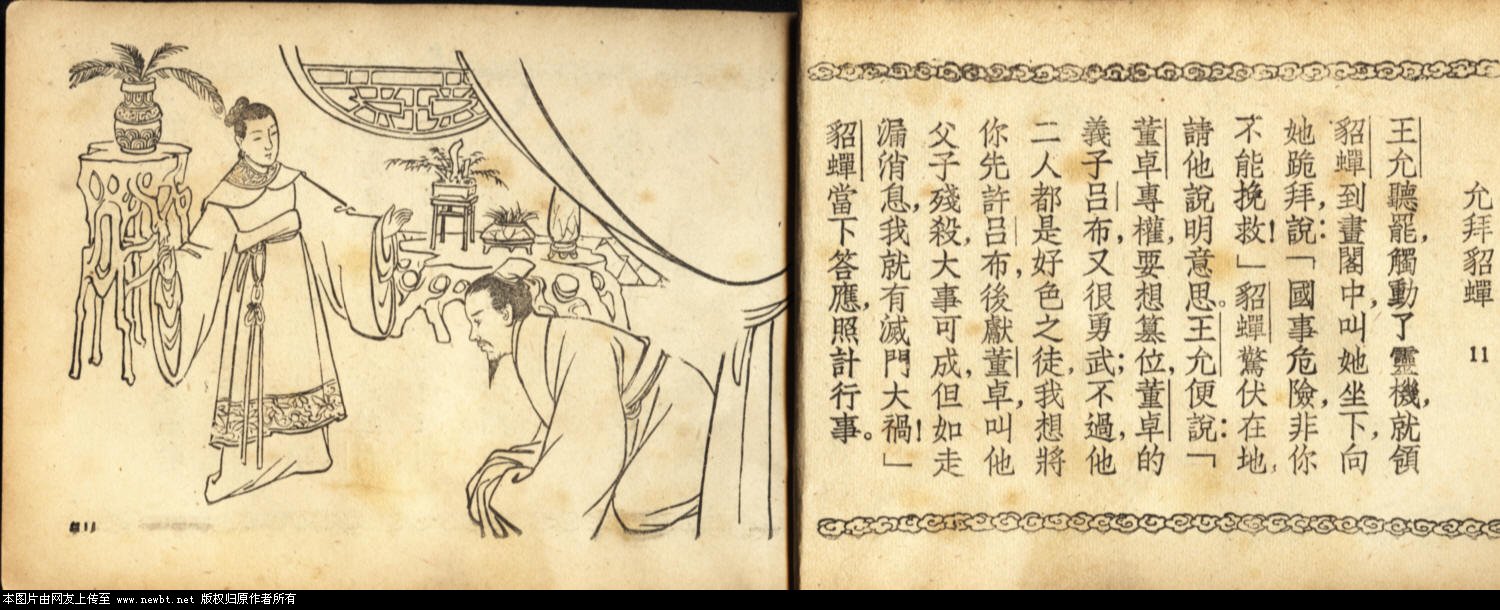 允拜貂蟬 11
王允聽罷，觸動了靈機，就領
貂蟬到畫閣中，叫她坐下，向
她跪拜，說：「國事危險，非你
不能挽救！」貂蟬驚伏在地，
請他說明意思。王允便說：「
董卓專權，要想篡位，董卓的
義子呂布，又很勇武；不過，他
二人都是好色之徒，我想將
你先許呂布，後獻董卓，叫他
父子殘殺，大事可成，但如走
漏消息，我就有滅門大禍！」
貂蟬當下答應，照計行事。
本图片由网友上传至 www.newbt.net 版权归原作者所有